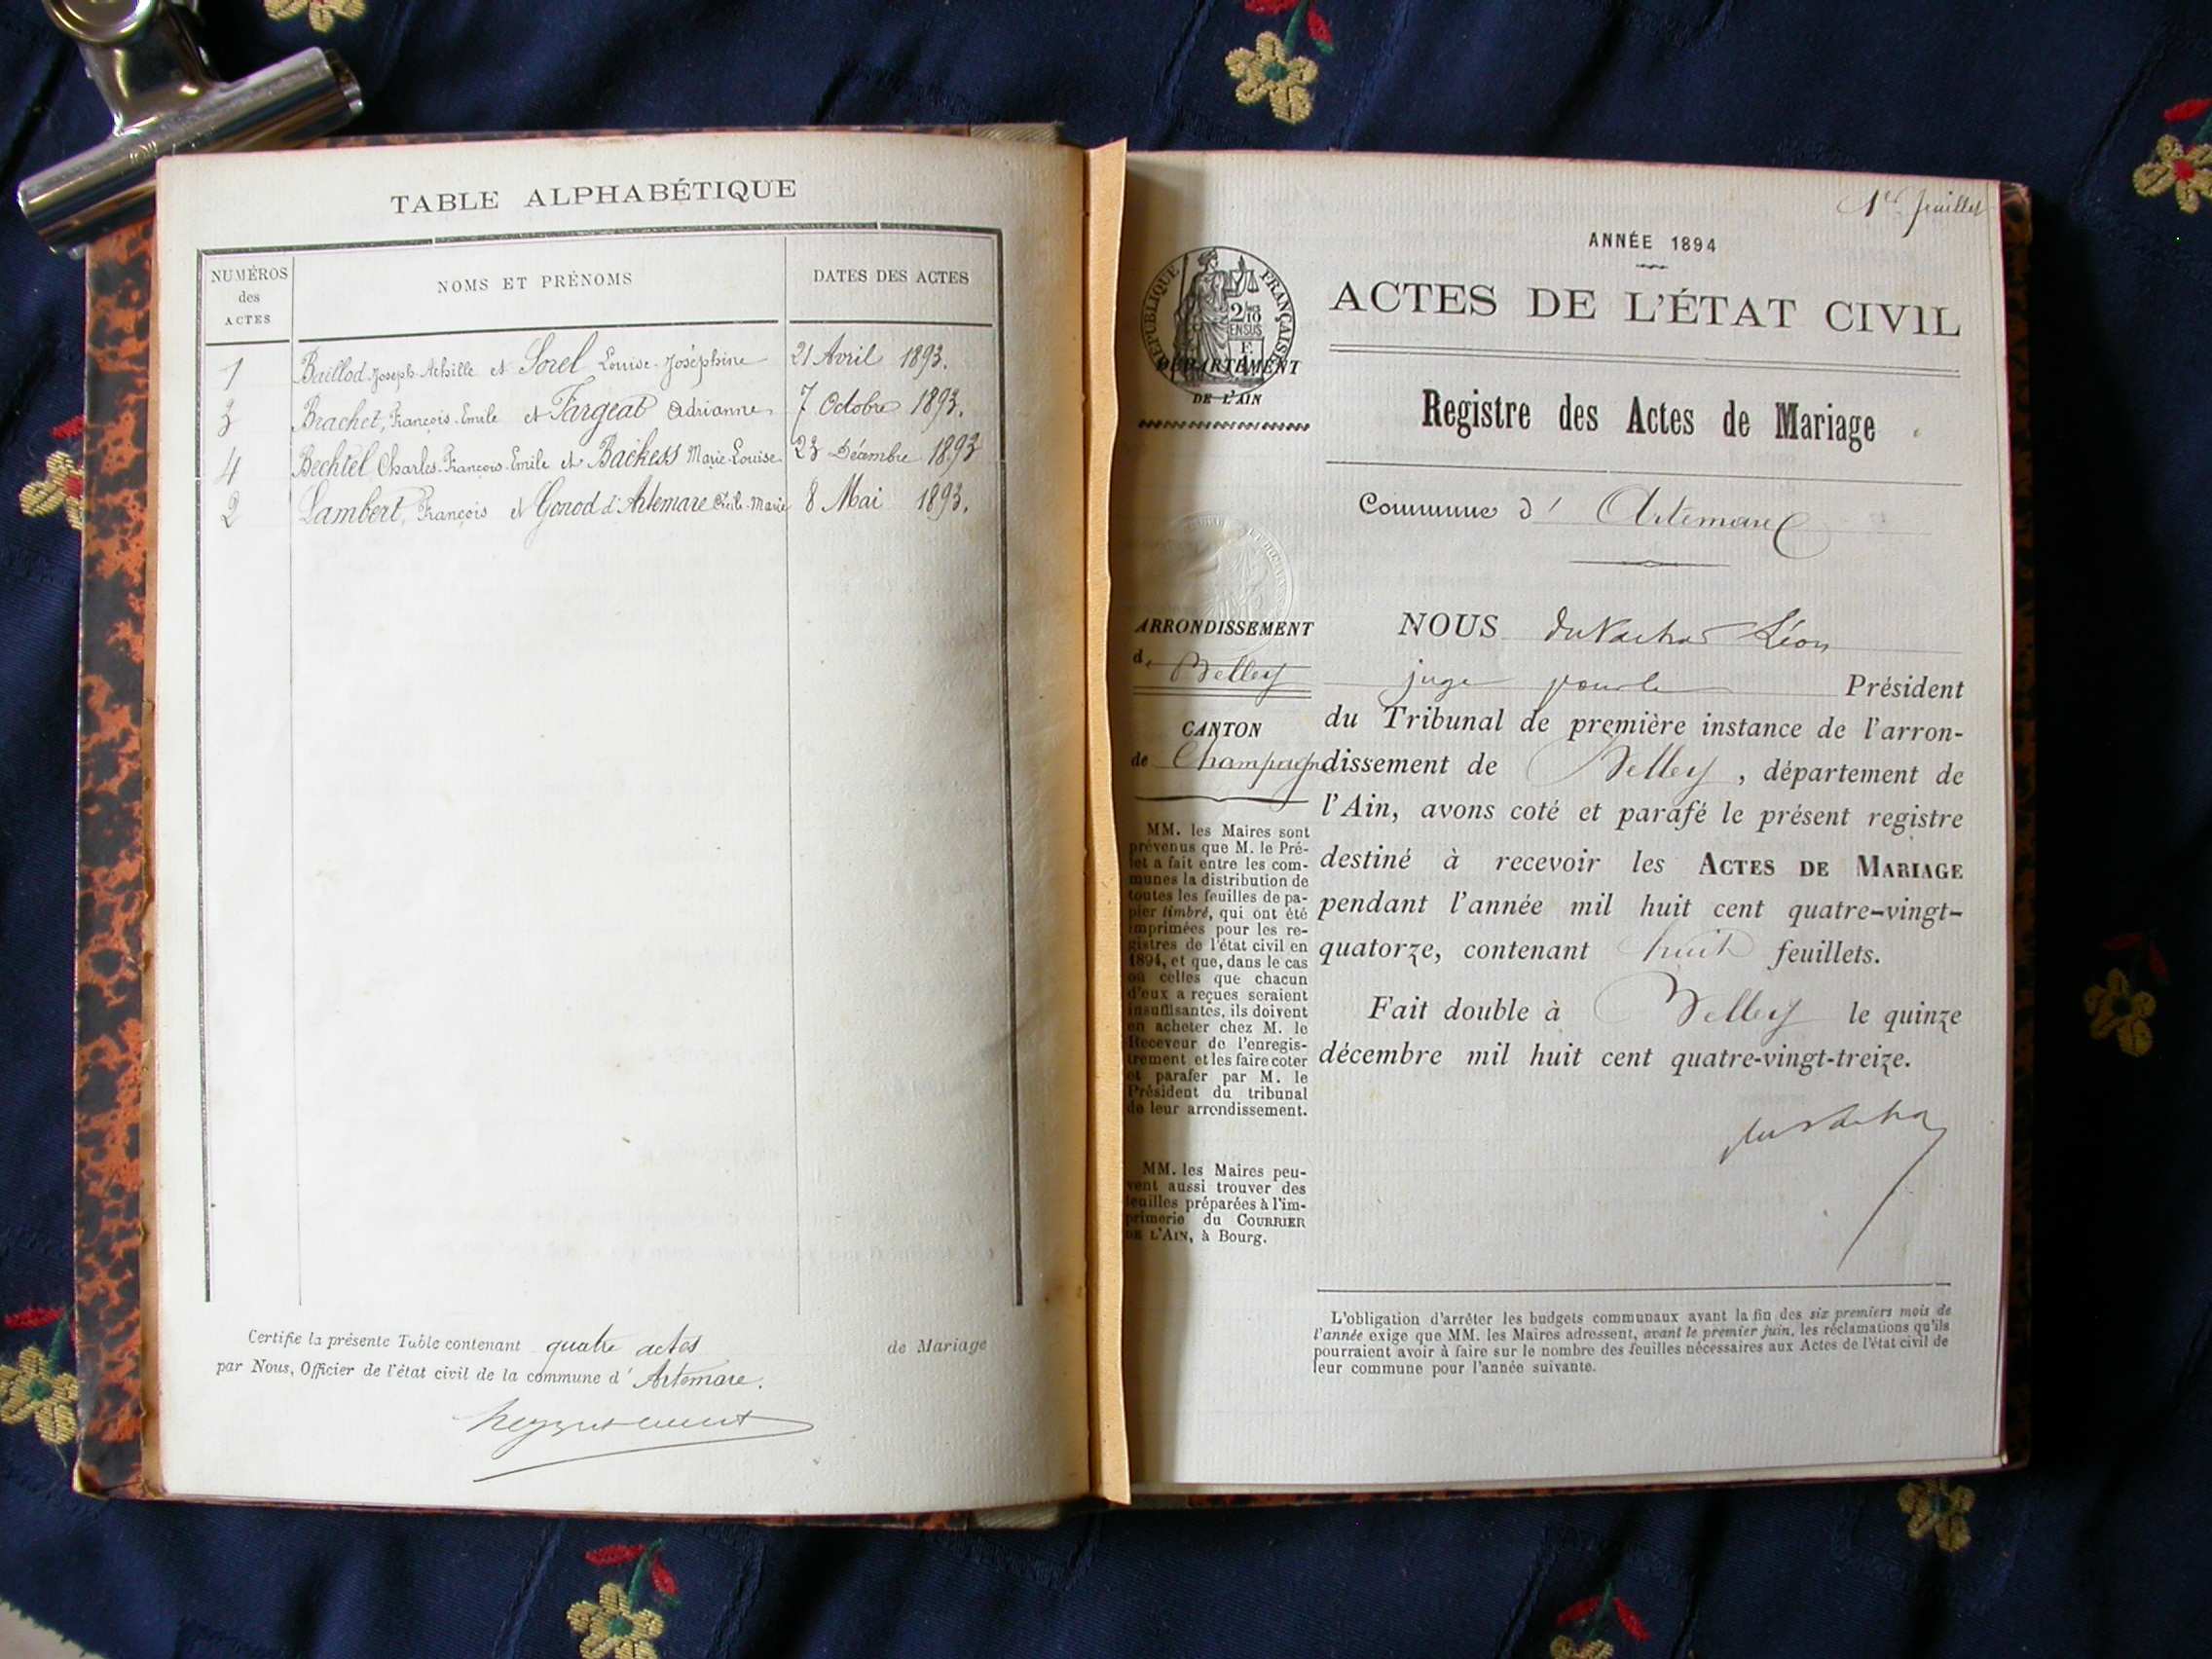 TABLE ALPHABÉTIQUE
NUMÉROS
des
ACTES
NOMS ET PRÉNOMS
DATES DES ACTES
1 Baillod Joseph-Achille et Sorel Louise-Joséphine 21 Avril 1893.
3 Brachet, François-Emile et Fargeat Adrianne 7 Octobre 1893.
4 Bechtel Charles-François-Emile et Backess Marie-Louise 23 Décembre 1893
2 Lambert, François et Gonod d'Artemare Marie 8 Mai 1893.
Certifie la présente Table contenant quatre actes de Mariage
par Nous, Officier de l'état civil de la commune d' Artemare.
1er feuillet
ANNÉE 1894
ACTES DE L'ÉTAT CIVIL
RÉPUBLIQUE FRANÇAISE
2/10
EN SUS
DÉPARTEMENT
DE L'AIN
Registre des Actes de Mariage
Commune d' Artemare
ARRONDISSEMENT
de Belley
CANTON
de Champagne
MM. les Maires sont
prévenus que M. le Pré-
fet a fait entre les com-
munes la distribution de
toutes les feuilles de pa-
pier timbré, qui ont été
imprimées pour les re-
gistres de l'état civil en
1894, et que, dans le cas
où celles que chacun
d'eux a reçues seraient
insuffisantes, ils doivent
en acheter chez M. le
Receveur de l'enregis-
trement et les faire coter
et parafer par M. le
Président du tribunal
de leur arrondissement.
MM. les Maires peu-
vent aussi trouver des
feuilles préparées à l'im-
primerie du COURRIER
DE L'AIN, à Bourg.
NOUS Léon
juge pour le Président
du Tribunal de première instance de l'arron-
dissement de Belley, département de
l'Ain, avons coté et parafé le présent registre
destiné à recevoir les ACTES DE MARIAGE
pendant l'année mil huit cent quatre-vingt-
quatorze, contenant huit feuillets.
Fait double à Belley le quinze
décembre mil huit cent quatre-vingt-treize.
L'obligation d'arrêter les budgets communaux avant la fin des six premiers mois de
l'année exige que MM. les Maires adressent, avant le premier juin, les réclamations qu'ils
pourraient avoir à faire sur le nombre des feuilles nécessaires aux Actes de l'état civil de
leur commune pour l'année suivante.